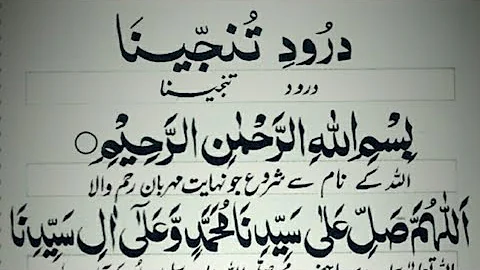 درُودِ تُنجِّينَا
درود تنجینا
بِسْمِ اللّٰهِ الرَّحْمٰنِ الرَّحِيْمِ○
اللہ کے نام سے شروع جو نہایت مہربان رحم والا
اَللّٰهُمَّ صَلِّ عَلٰى سَيِّدِنَا مُحَمَّدٍ وَّعَلٰٓى اٰلِ سَيِّدِنَا